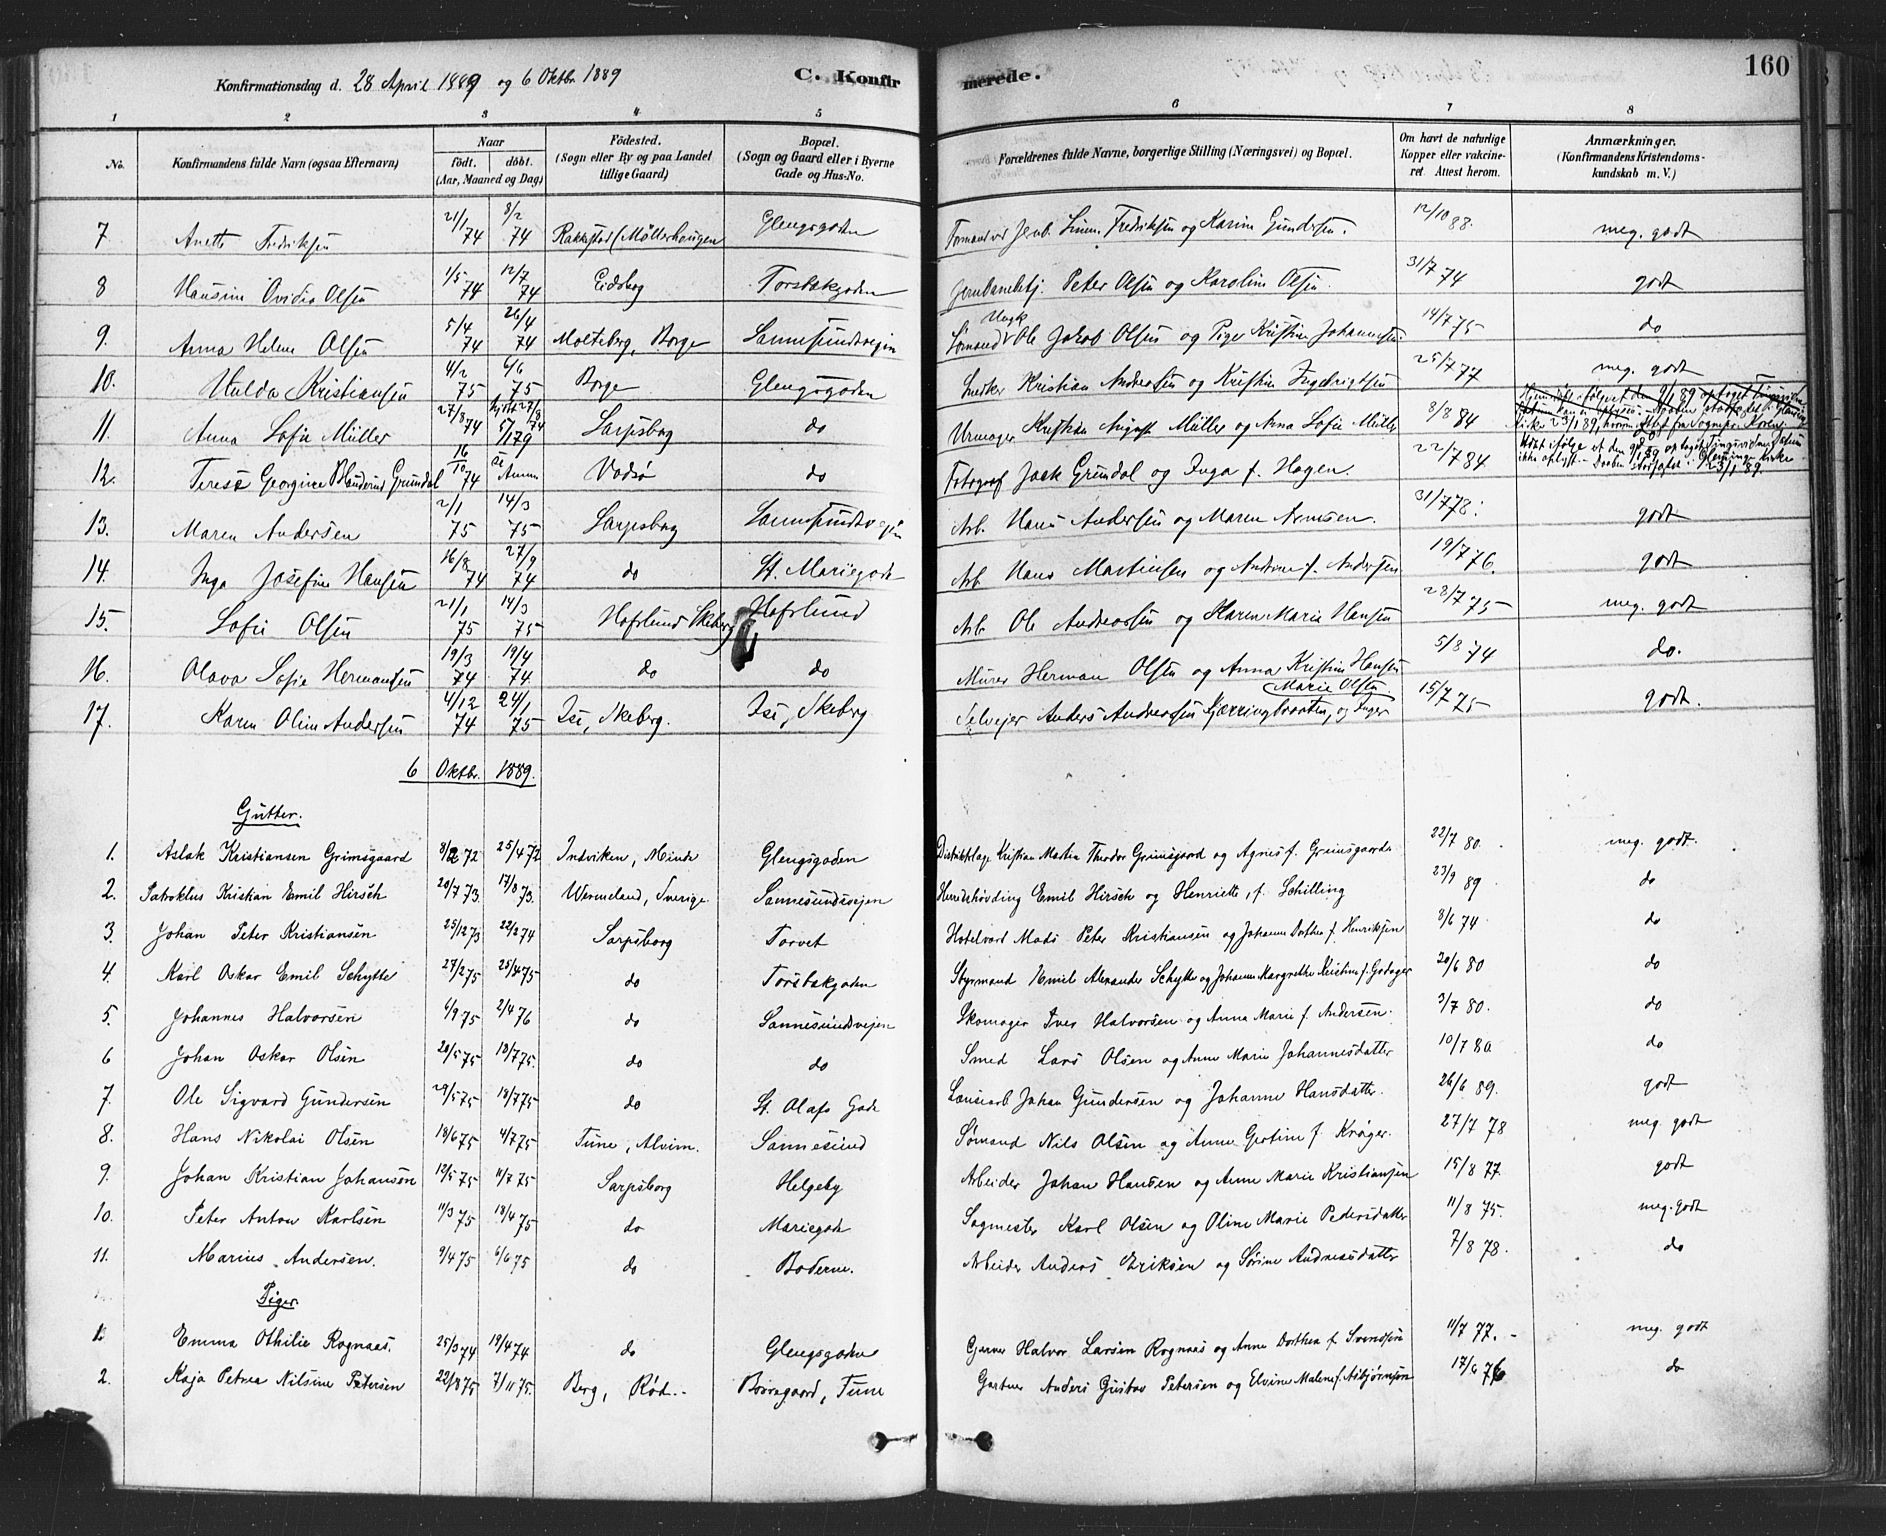 Konfirmationsdag d. 28 April 1889 og 6 Oktbr 1889 C. Konfirmerede. 160
1 2 3 4 5 6 7 8
No. Konfirmandens fulde Navn (ogsaa Efternavn) Naar födt. döbt. (Aar, Maaned og Dag) Födested. (Sogn eller By og paa Landet tillige Gaard) Bopæl. (Sogn og Gaard eller i Byerne Gade og Hus-No. Forældrenes fulde Navne, borgerlige Stilling (Næringsvei) og Bopæl. Om havt de naturlige Kopper eller vakcineret. Attest herom. Anmærkninger. (Konfirmandens Kristendomskundskab m. V.)
7 Anette Fredriksen 21/1 74 8/2 74 Rakkestad (Möllerhaugen Glengsgaden Fredriksen og Karine Gundersen. 12/10 88. meg. godt
8 Hansine Ovidia Olsen 1/5 74 12/7 74 Eidsberg Torsbækgaden Jernbanebetj. Peter Olsen og Karoline Olsen. 31/7 74 godt
9. Anna Helene Olsen 5/4 74 26/4 74 Molteberg, Borge Sannesundsveien Ungk Sömand Ole Jakob Olsen og Pige Kristine Johannesen. 14/7 75 do
10. Hulda Kristiansen 4/2 75 6/6 75 Borge Glengsgaden Snedker Kristian Andersen og Kristine Ingebrigtsen 25/7 77 meg. godt
11. Anna Sofie Müller 27/8 74 Sarpsborg do Urmager Kristian August Müller og Anna Sofie Müller 8/8 84
12. Terese Georgine Grundal 16/10 74 Vadsø do Fotograf Jack Grundal og Inga f. Hagen. 22/7 84
13. Maren Andersen 2/1 75 14/3 75 Sarpsborg Sannesundsveien Arb. Hans Andersen og Maren Arnesen. 31/7 78. godt
14. Inga Josefine Hansen 16/8 74 27/9 74 do St. Mariegade Arb. Hans Martinsen og Andrine f. Andersen 19/7 76. godt
15. Sofie Olsen 21/1 75 14/3 75 Hafslund Skeberg Hafslund Arb. Ole Andreassen og Karen Marie Hansen 28/7 75 meg. godt
16. Olava Sofie Hermansen 19/3 74 19/4 74. do do Murer Herman Olsen og Anna Kristine Hansen 5/8 74 do.
17. Karen Oline Andersen 4/12 74 24/1 75 Ise, Skeberg. Ise, Skeberg Selvejer Anders Andersen Kjærringbraaten, og Inger Marie Olsen 15/7 75 godt.
6 Oktbr. 1889.
Gutter.
1. Aslak Kristiansen Grimsgaard 8/2 72 25/4 72 Indviken, Minde Glengsgaden Distriktslæge Kristian Martin Theodor Grimsgaard og Agnes f. Grimsgaard 22/7 80. meg. godt.
2. Patroklus Kristian Emil Hirsch 20/7 73. 17/8 73. Wermeland, Sverige. Sannesundsvejen Herredshövding Emil Hirsch og Henriette, f. Schilling 23/9 89. do
3. Johan Peter Kristiansen 25/12 73 22/2 74 Sarpsborg Torvet Hotelvært Mads Peter Kristiansen og Johanne Dorthea f. Henriksen 8/6 74 do
4. Karl Oskar Emil Schytte 27/2 75 25/4 75 do Torsbækgaden Styrmand Emil Alexander Schytte og Johanne Margrethe Kristine f. Godager 20/6 80 do
5. Johannes Halvorsen 6/9 75 2/4 76 do Sannesundsvejen Skomager Iver Halvorsen og Anna Marie f. Andersen. 3/7 80. do
6 Johan Oskar Olsen 20/5 75 18/7 75. do do Smed Lars Olsen og Anne Marie Johannesdatter 10/7 80. do
7. Ole Sigvard Gundersen 29/5 75 18/7 75 do St. Olafs Gade Johan Gundersen og Johanne Hansdatter. 26/6 89. godt
8. Hans Nikolai Olsen 18/6 75 4/7 75 Tune, Alvim. Sannesund Sømand Nils Olsen og Anne Gertine f. Krøger. 27/7 78 meg. godt
9. Johan Kristian Johansen 12/5 75 11/7 75 Sarpsborg Helgeby Arbeider Johan Hansen og Anne Marie Kristiansen 15/8 77 godt
10. Peter Anton Karlsen 11/3 75 18/4 75 do Mariegade Sagmester Karl Olsen og Oline Marie Pedersdatter 11/8 75. meg. godt
11. Marius Andersen. 9/4 75 6/6 75 do Boderne. Arbeider Anders Eriksen og Sørine Andreasdatter 7/8 78. do
Piger.
1. Emma Othilie Rognaas. 25/3 74 19/4 74 do Glengsgaden Garver Halvor Larsen Rognaas og Anne Dorthea f. Svendsen 11/7 77. meg. godt
2. Kaja Petrea Nilsine Petersen 22/8 75 7/11 75. Berg, Rød. Tune Gartner Anders Gustav Petersen og Elvine Malene f. Asbjørnsen 17/6 76 do